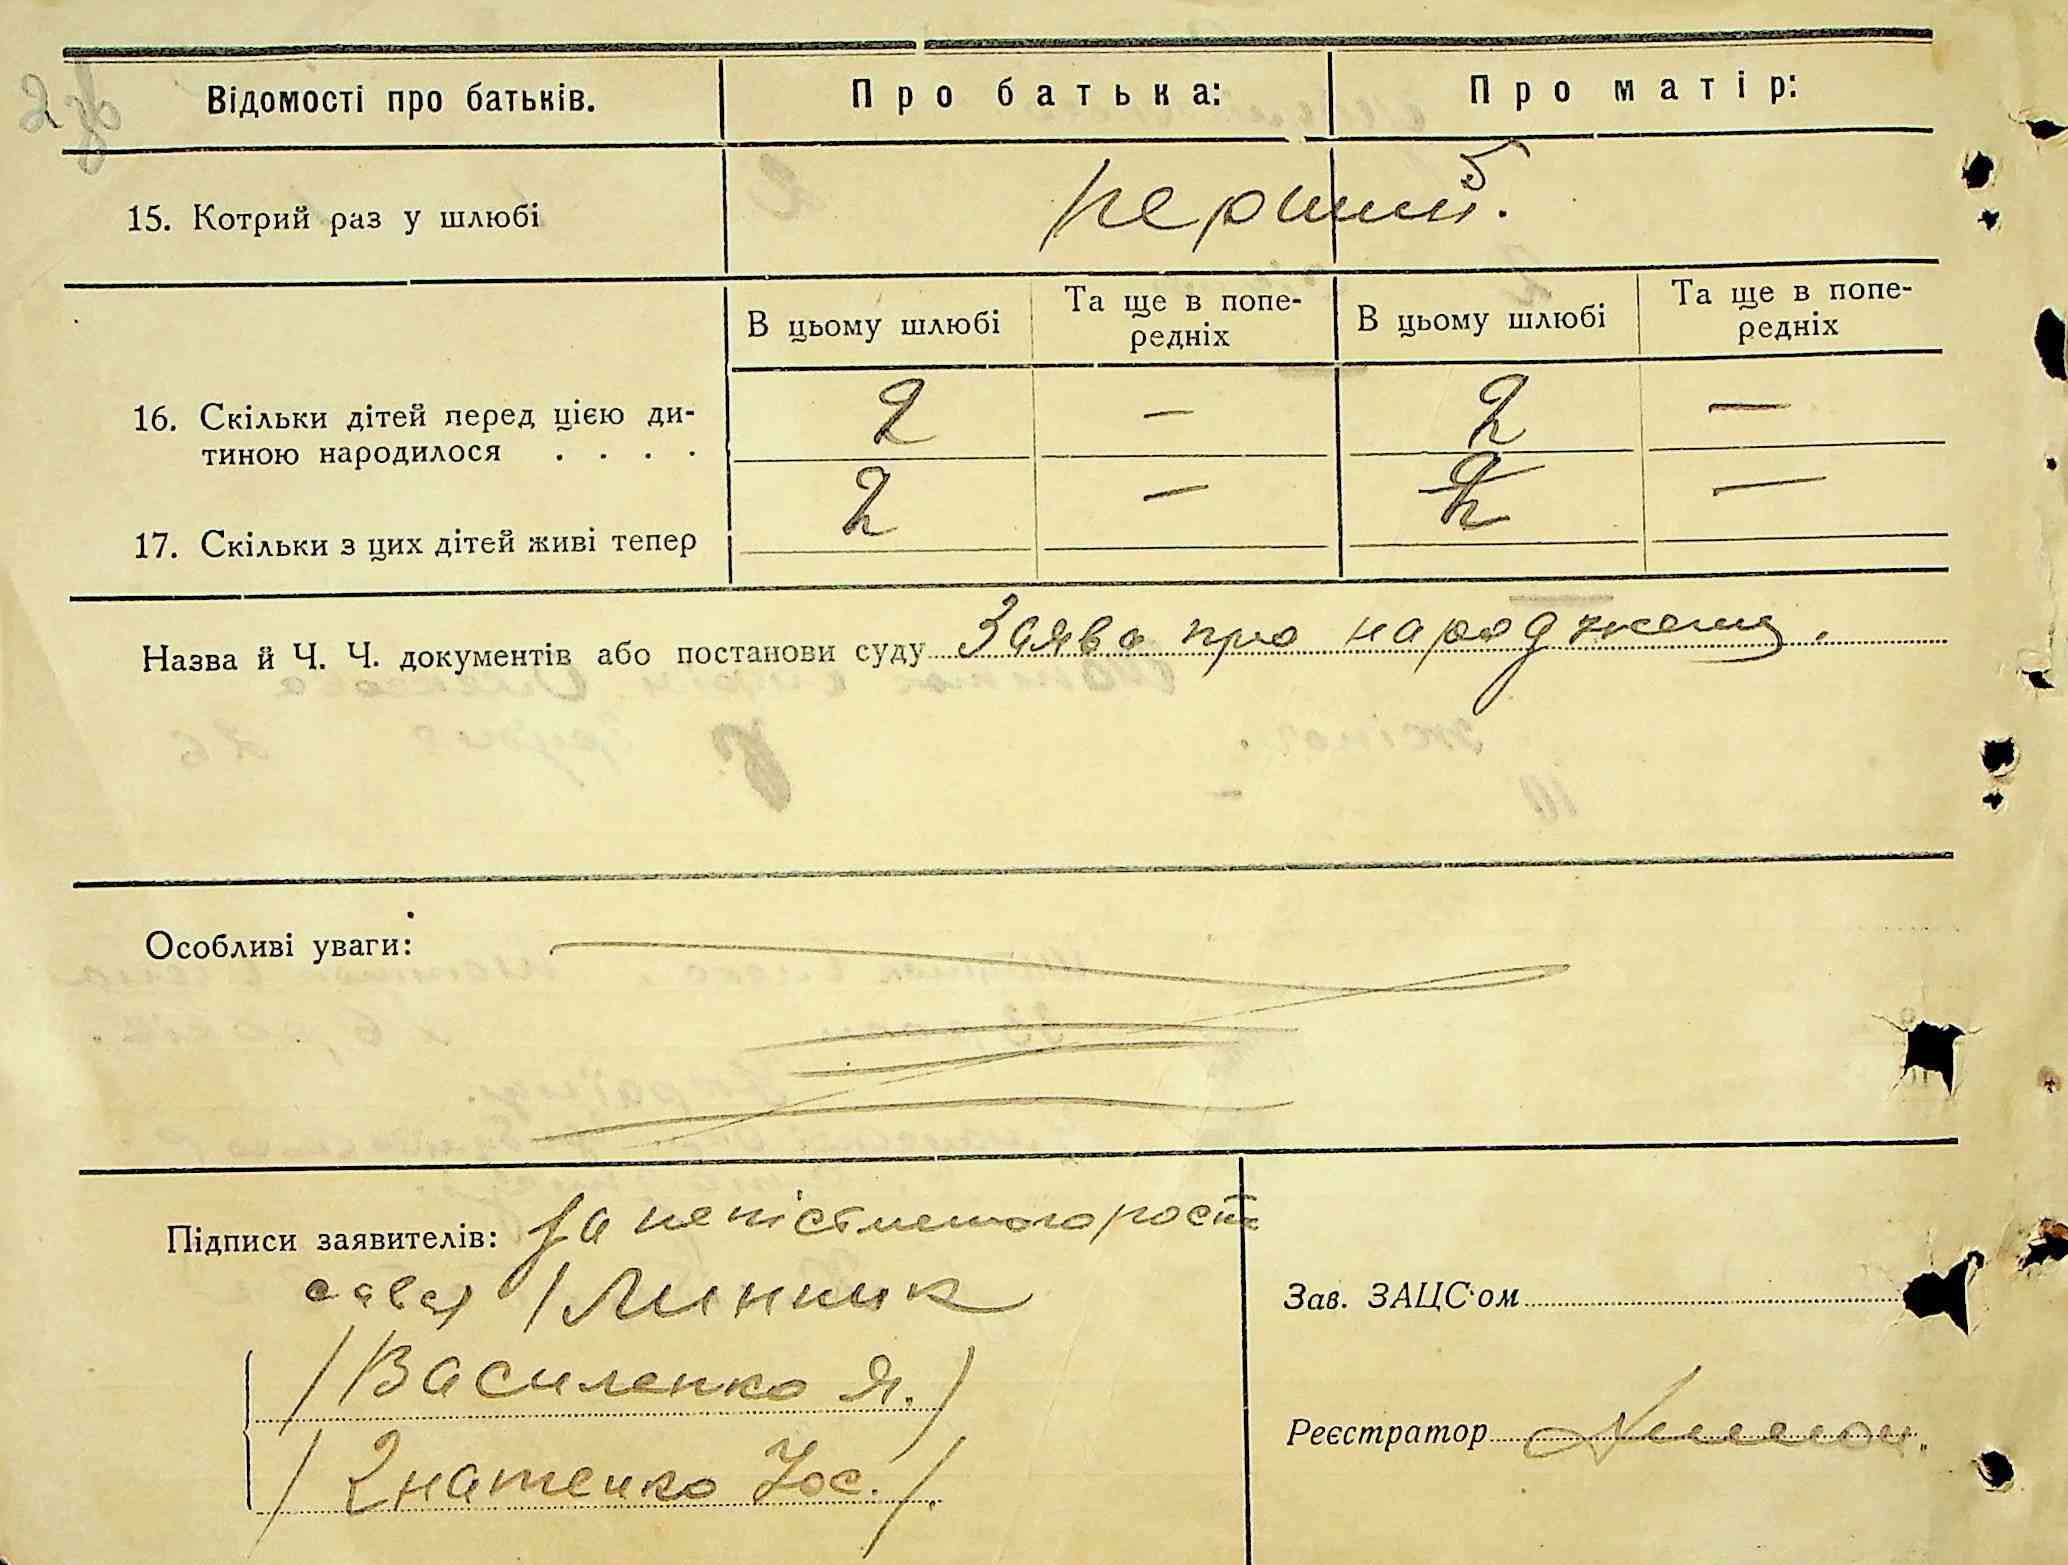 Відомості про батьків.
Про батька:
Про матір:
15. Котрий раз у шлюбі
перший.
В цьому шлюбі
Та ще в попе-
редніх
В цьому шлюбі
Та ще в попе-
редніх
16. Скільки дітей перед цією ди-
тиною народилося . . . .
2 — 2 —
17. Скільки з цих дітей живі тепер
2 — 2 —
Назва й Ч. Ч. документів або постанови суду Заява про народження.
Особливі уваги:
Підписи заявителів: За неписьменого рост
савсь / Линник
/ Василенко Я. /
/ Гнатенко Йос. /.
Зав. ЗАЦС'ом
Реєстратор